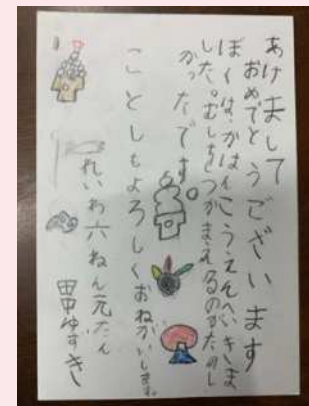 あけまして
おめでとうございます
ぼくは、かはんこうえんへいきま
した。むしをつかまえるのがたのし
かったです。
ことしもよろしくおねがいします。
れいわ六ねん元たん
田中ゆずき